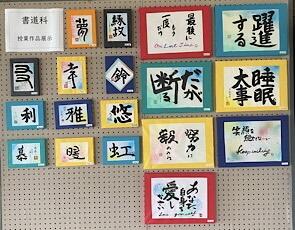 書道科
授業作品展示
夢
縁
故
最後に
もう一度だけ
One Last Time
躍進
する
幸
鈴
だが
断る
睡眠
大事
利
雅
悠
努力に
笑顔を
絶やさない
Keep smiling
慕
暖
虹
あなた
自身を
愛し
なさい
Love yourself